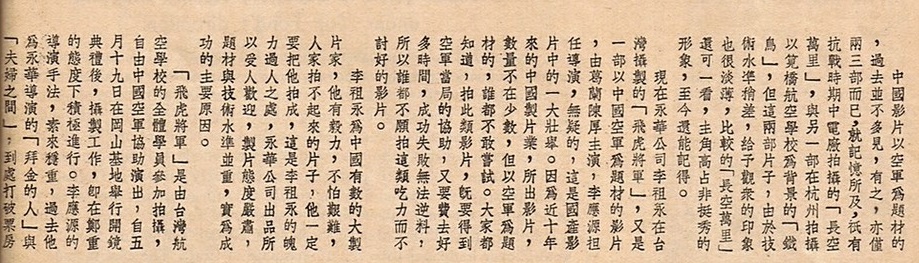 空軍爲題材的
,過去並不多見,有之,亦僅
兩三部而已,就記憶所及,祇有
抗戰時期中電廠拍攝的「長空
萬里」,與另一部在杭州拍攝
以筧橋航空學校爲背景的「鐵
鳥」,但這兩部片子,由於技
術水準稍差,給予觀衆的印象
也很淡薄,比較的「長空萬里」
還可一看,主角高占非挺秀的
形象,至今還能記得。
現在永華公司李祖永在台
灣攝製的「飛虎將軍」,又是
一部以中國空軍爲題材的影片
,由葛蘭陳厚主演,李應源担
任導演,無疑的,這是國產影
片中的一大壯擧。因爲近十年
來的中國製片業,所出影片,
數量不在少數,但以空軍爲題
材的,誰都不敢嘗試。大家都
知道,拍此類影片,旣要得到
空軍當局的協助,又要費去好
多時間,成功失敗無法逆料,
所以誰都不願拍這類吃力而不
討好的影片。
李祖永爲中國有數的大製
片家,他有毅力,不怕艱難,
人家拍不起來的片子,他一定
要把他拍成,這是李祖永的魄
力過人之處,永華公司出品所
以受人歡迎,製片態度嚴肅,
題材與技術水準並重,實爲成
功的主要原因。
「飛虎將軍」是由台灣航
空學校的全體學員參加拍攝,
自由中國空軍協助演出,自五
月十九日在岡山基地擧行開鏡
典禮後,攝製工作,卽在鄭重
的態度下積極進行。李應源的
導演手法,素來穩重,過去他
爲永華導演的「拜金的人」與
「夫婦之間」,到處打破票房